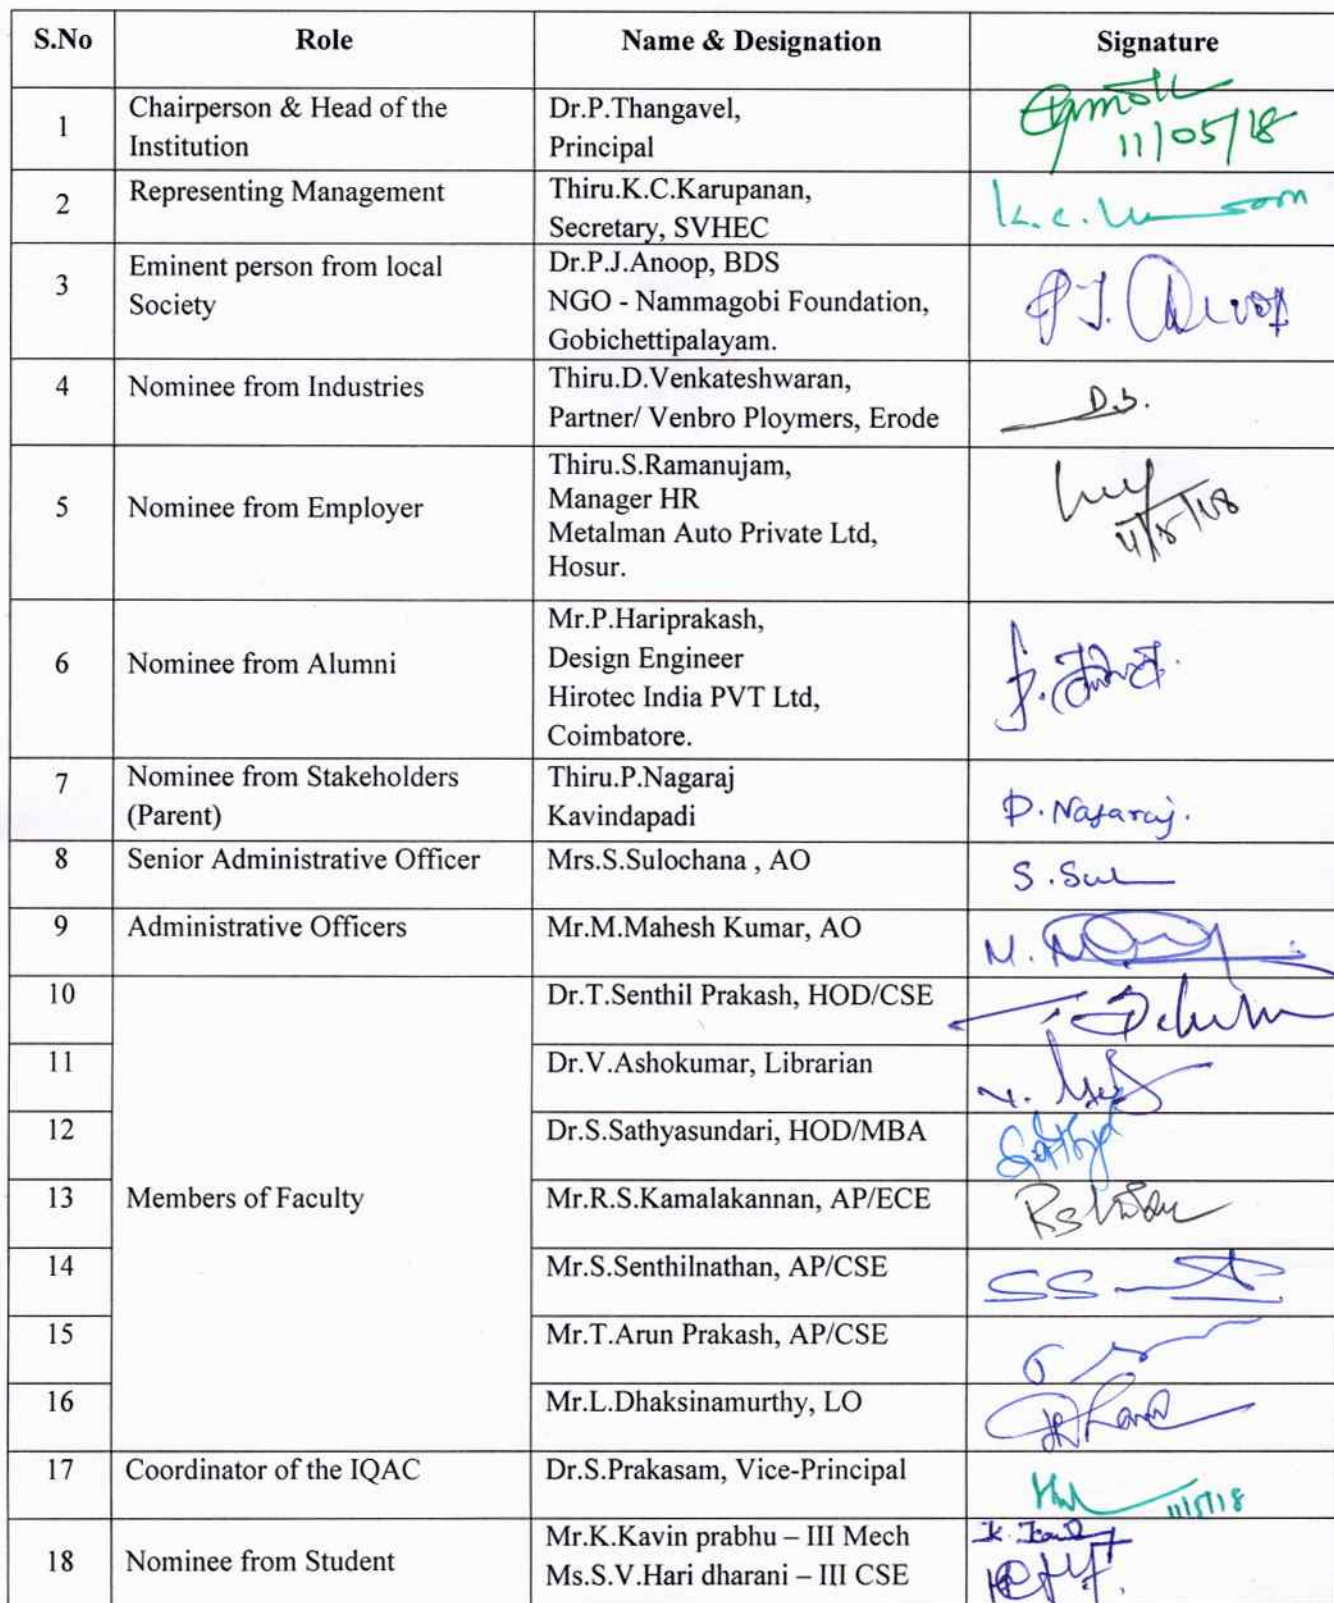 S.No Role Name & Designation Signature
1 Chairperson & Head of the Institution Dr.P.Thangavel,
Principal
11/05/18
2 Representing Management Thiru.K.C.Karupanan,
Secretary, SVHEC
K.C.
3 Eminent person from local
Society
Dr.P.J.Anoop, BDS
NGO - Nammagobi Foundation,
Gobichettipalayam.
P.J. Anoop
4 Nominee from Industries
Thiru.D.Venkateshwaran,
Partner/ Venbro Ploymers, Erode
D.S.
5 Nominee from Employer
Thiru.S.Ramanujam,
Manager HR
Metalman Auto Private Ltd,
Hosur.
11/5/18
6 Nominee from Alumni
Mr.P.Hariprakash,
Design Engineer
Hirotec India PVT Ltd,
Coimbatore.
7 Nominee from Stakeholders
(Parent)
Thiru.P.Nagaraj
Kavindapadi
P.Nagaraj.
8 Senior Administrative Officer Mrs.S.Sulochana , AO S.Sul
9 Administrative Officers Mr.M.Mahesh Kumar, AO M.
10 Dr.T.Senthil Prakash, HOD/CSE
11 Dr.V.Ashokumar, Librarian
12 Dr.S.Sathyasundari, HOD/MBA
13 Members of Faculty Mr.R.S.Kamalakannan, AP/ECE
14 Mr.S.Senthilnathan, AP/CSE SS
15 Mr.T.Arun Prakash, AP/CSE
16 Mr.L.Dhaksinamurthy, LO
17 Coordinator of the IQAC Dr.S.Prakasam, Vice-Principal 11/5/18
18 Nominee from Student
Mr.K.Kavin prabhu – III Mech
Ms.S.V.Hari dharani – III CSE